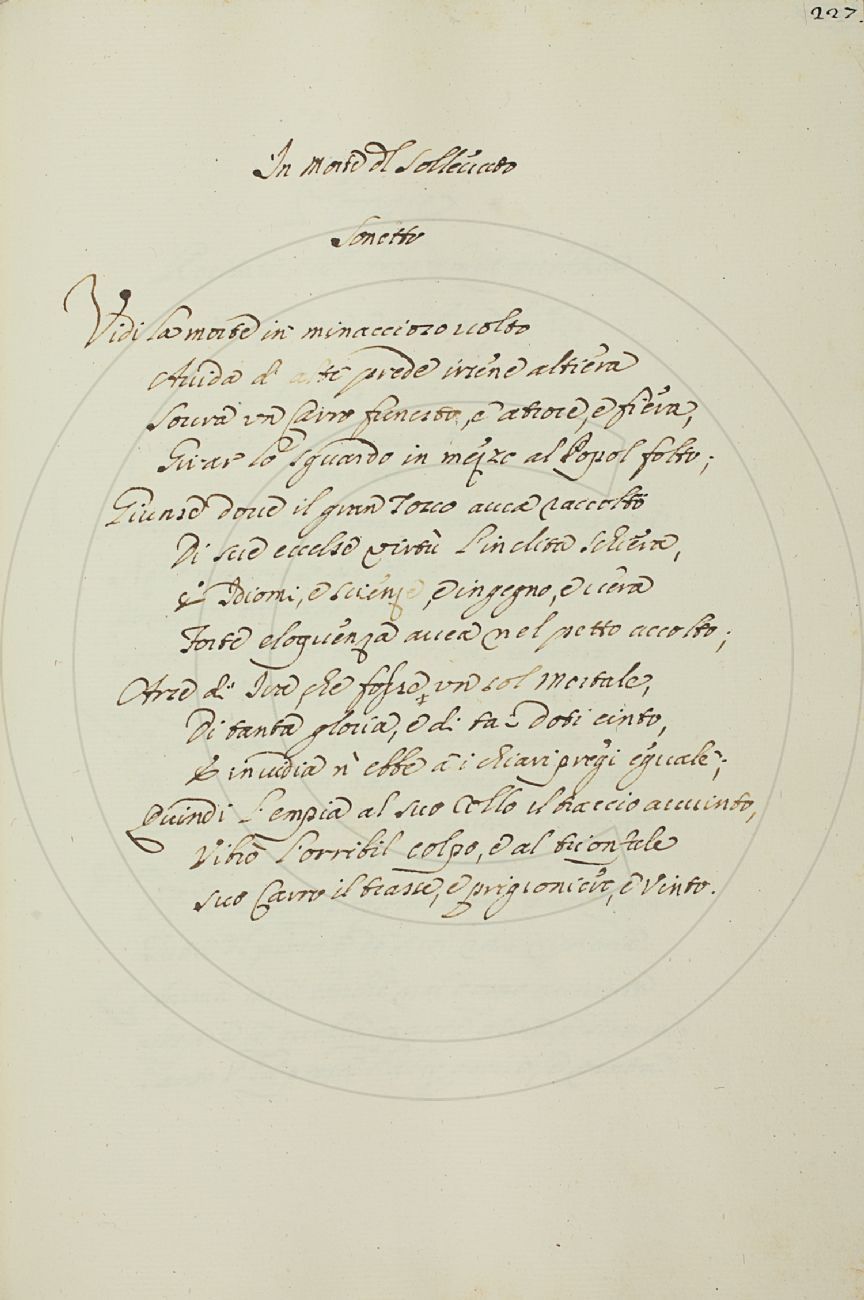 227.
In Morte del Sollevato
Sonetto
Vidi la morte in minaccioso volto
Avida d' alte prede irsene altiera
Sovra un Carro funesto, e atroce, e fiera,
Girar lo sguardo in mezzo al Popol folto;
Giunse dove il gran Tosco avea raccolto
Di sue eccelse virtù l'inclita schiera,
E Idiomi, e scienze, e ingegno, e vera
Forte eloquenza avea nel petto accolto;
Arse d' Ira, che fosse un sol Mortale,
Di tanta gloria, e di ta' Doti cinto,
E invidia n' ebbe a i chiari pregi eguale;
Quindi l'empia al suo Collo il braccio avvinto,
Vibrò l'orribil colpo, e al trionfale
suo Carro il trasse, e prigioniero, e vinto.